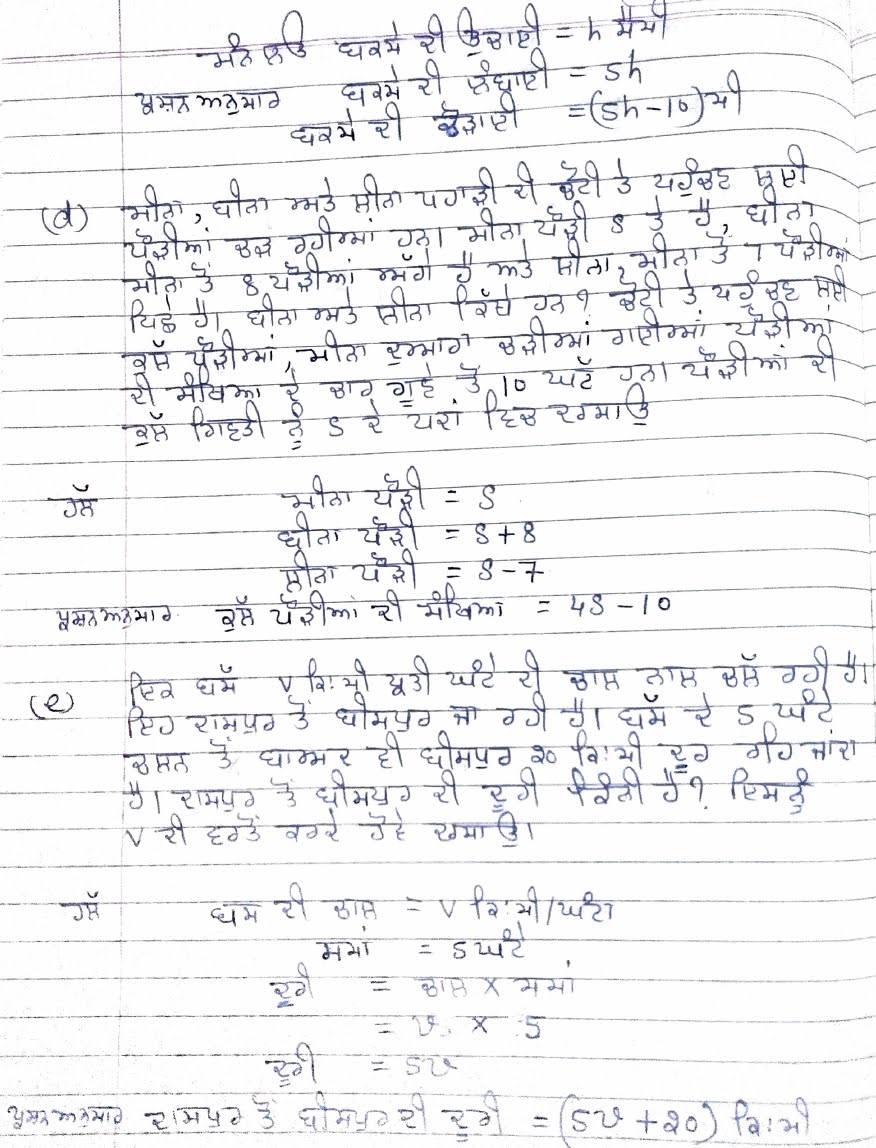 ਮੰਨ ਲਓ ਬਕਸੇ ਦੀ ਉਚਾਈ = h ਸੈਮੀ
ਪ੍ਰਸ਼ਨ ਅਨੁਸਾਰ ਬਕਸੇ ਦੀ ਲੰਬਾਈ = 5h
ਬਕਸੇ ਦੀ ਚੌੜਾਈ = (5h-10) ਮੀ
(d) ਮੀਨਾ, ਬੀਨਾ ਅਤੇ ਲੀਨਾ ਪਹਾੜੀ ਦੀ ਚੋਟੀ ਤੇ ਪਹੁੰਚਣ ਲਈ
ਪੌੜੀਆਂ ਚੜ ਰਹੀਆਂ ਹਨ। ਮੀਨਾ ਪੌੜੀ S ਤੇ ਹੈ, ਬੀਨਾ
ਮੀਨਾ ਤੋਂ 8 ਪੌੜੀਆਂ ਅੱਗੇ ਹੈ ਅਤੇ ਲੀਨਾ, ਮੀਨਾ ਤੋਂ 7 ਪੌੜੀਆਂ
ਪਿਛੇ ਹੈ। ਬੀਨਾ ਅਤੇ ਲੀਨਾ ਕਿੱਥੇ ਹਨ? ਚੋਟੀ ਤੇ ਪਹੁੰਚਣ ਲਈ
ਕੁਲ ਪੌੜੀਆਂ, ਮੀਨਾ ਦੁਆਰਾ ਚੜੀਆਂ ਗਈਆਂ ਪੌੜੀਆਂ
ਦੀ ਸੰਖਿਆ ਦੇ ਚਾਰ ਗੁਣੇ ਤੋਂ 10 ਘੱਟ ਹਨ। ਪੌੜੀਆਂ ਦੀ
ਕੁਲ ਗਿਣਤੀ ਨੂੰ S ਦੇ ਪਦਾਂ ਵਿਚ ਦਰਸਾਉ
ਹੱਲ ਮੀਨਾ ਪੌੜੀ = S
ਬੀਨਾ ਪੌੜੀ = S+8
ਲੀਨਾ ਪੌੜੀ = S-7
ਪ੍ਰਸ਼ਨ ਅਨੁਸਾਰ ਕੁਲ ਪੌੜੀਆਂ ਦੀ ਸੰਖਿਆ = 4S-10
(e) ਇਕ ਬੱਸ V ਕਿ:ਮੀ ਪ੍ਰਤੀ ਘੰਟੇ ਦੀ ਚਾਲ ਨਾਲ ਚੱਲ ਰਹੀ ਹੈ।
ਇਹ ਰਾਮਪੁਰ ਤੋਂ ਬੀਮਪੁਰ ਜਾ ਰਹੀ ਹੈ। ਬੱਸ ਦੇ 5 ਘੰਟੇ
ਚਲਨ ਤੋਂ ਬਾਅਦ ਵੀ ਬੀਮਪੁਰ 20 ਕਿ:ਮੀ ਦੂਰ ਰਹਿ ਜਾਂਦਾ
ਹੈ। ਰਾਮਪੁਰ ਤੋਂ ਬੀਮਪੁਰ ਦੀ ਦੂਰੀ ਕਿੰਨੀ ਹੈ? ਇਸਨੂੰ
V ਦੀ ਵਰਤੋਂ ਕਰਦੇ ਹੋਏ ਦਰਸਾਉ।
ਹੱਲ ਬਸ ਦੀ ਚਾਲ = V ਕਿ:ਮੀ/ਘੰਟਾ
ਸਮਾਂ = 5 ਘੰਟੇ
ਦੂਰੀ = ਚਾਲ × ਸਮਾਂ
= v × 5
ਦੂਰੀ = 5v
ਪ੍ਰਸ਼ਨ ਅਨੁਸਾਰ ਰਾਮਪੁਰ ਤੋਂ ਬੀਮਪੁਰ ਦੀ ਦੂਰੀ = (5v+20) ਕਿ:ਮੀ